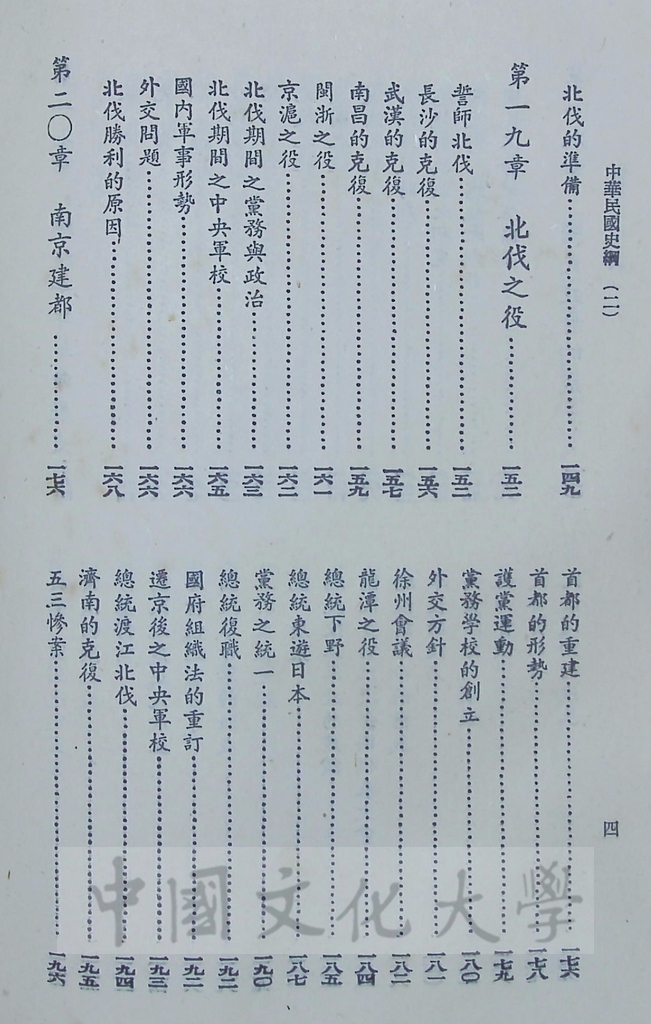 中華民國史綱（二）
四
北伐的準備……一四九
第一九章　北伐之役……一五二
誓師北伐……一五二
長沙的克復……一五六
武漢的克復……一五七
南昌的克復……一五九
閩浙之役……一六一
京滬之役……一六二
北伐期間之黨務與政治……一六三
北伐期間之中央軍校……一六五
國內軍事形勢……一六六
外交問題……一六六
北伐勝利的原因……一六八
第二〇章　南京建都……一七六
首都的重建……一七六
首都的形勢……一七八
護黨運動……一七九
黨務學校的創立……一八〇
外交方針……一八一
徐州會議……一八二
龍潭之役……一八四
總統下野……一八五
總統東遊日本……一八七
黨務之統一……一九〇
總統復職……一九二
國府組織法的重訂……一九二
遷京後之中央軍校……一九三
總統渡江北伐……一九四
濟南的克復……一九五
五三慘案……一九六
中國文化大學